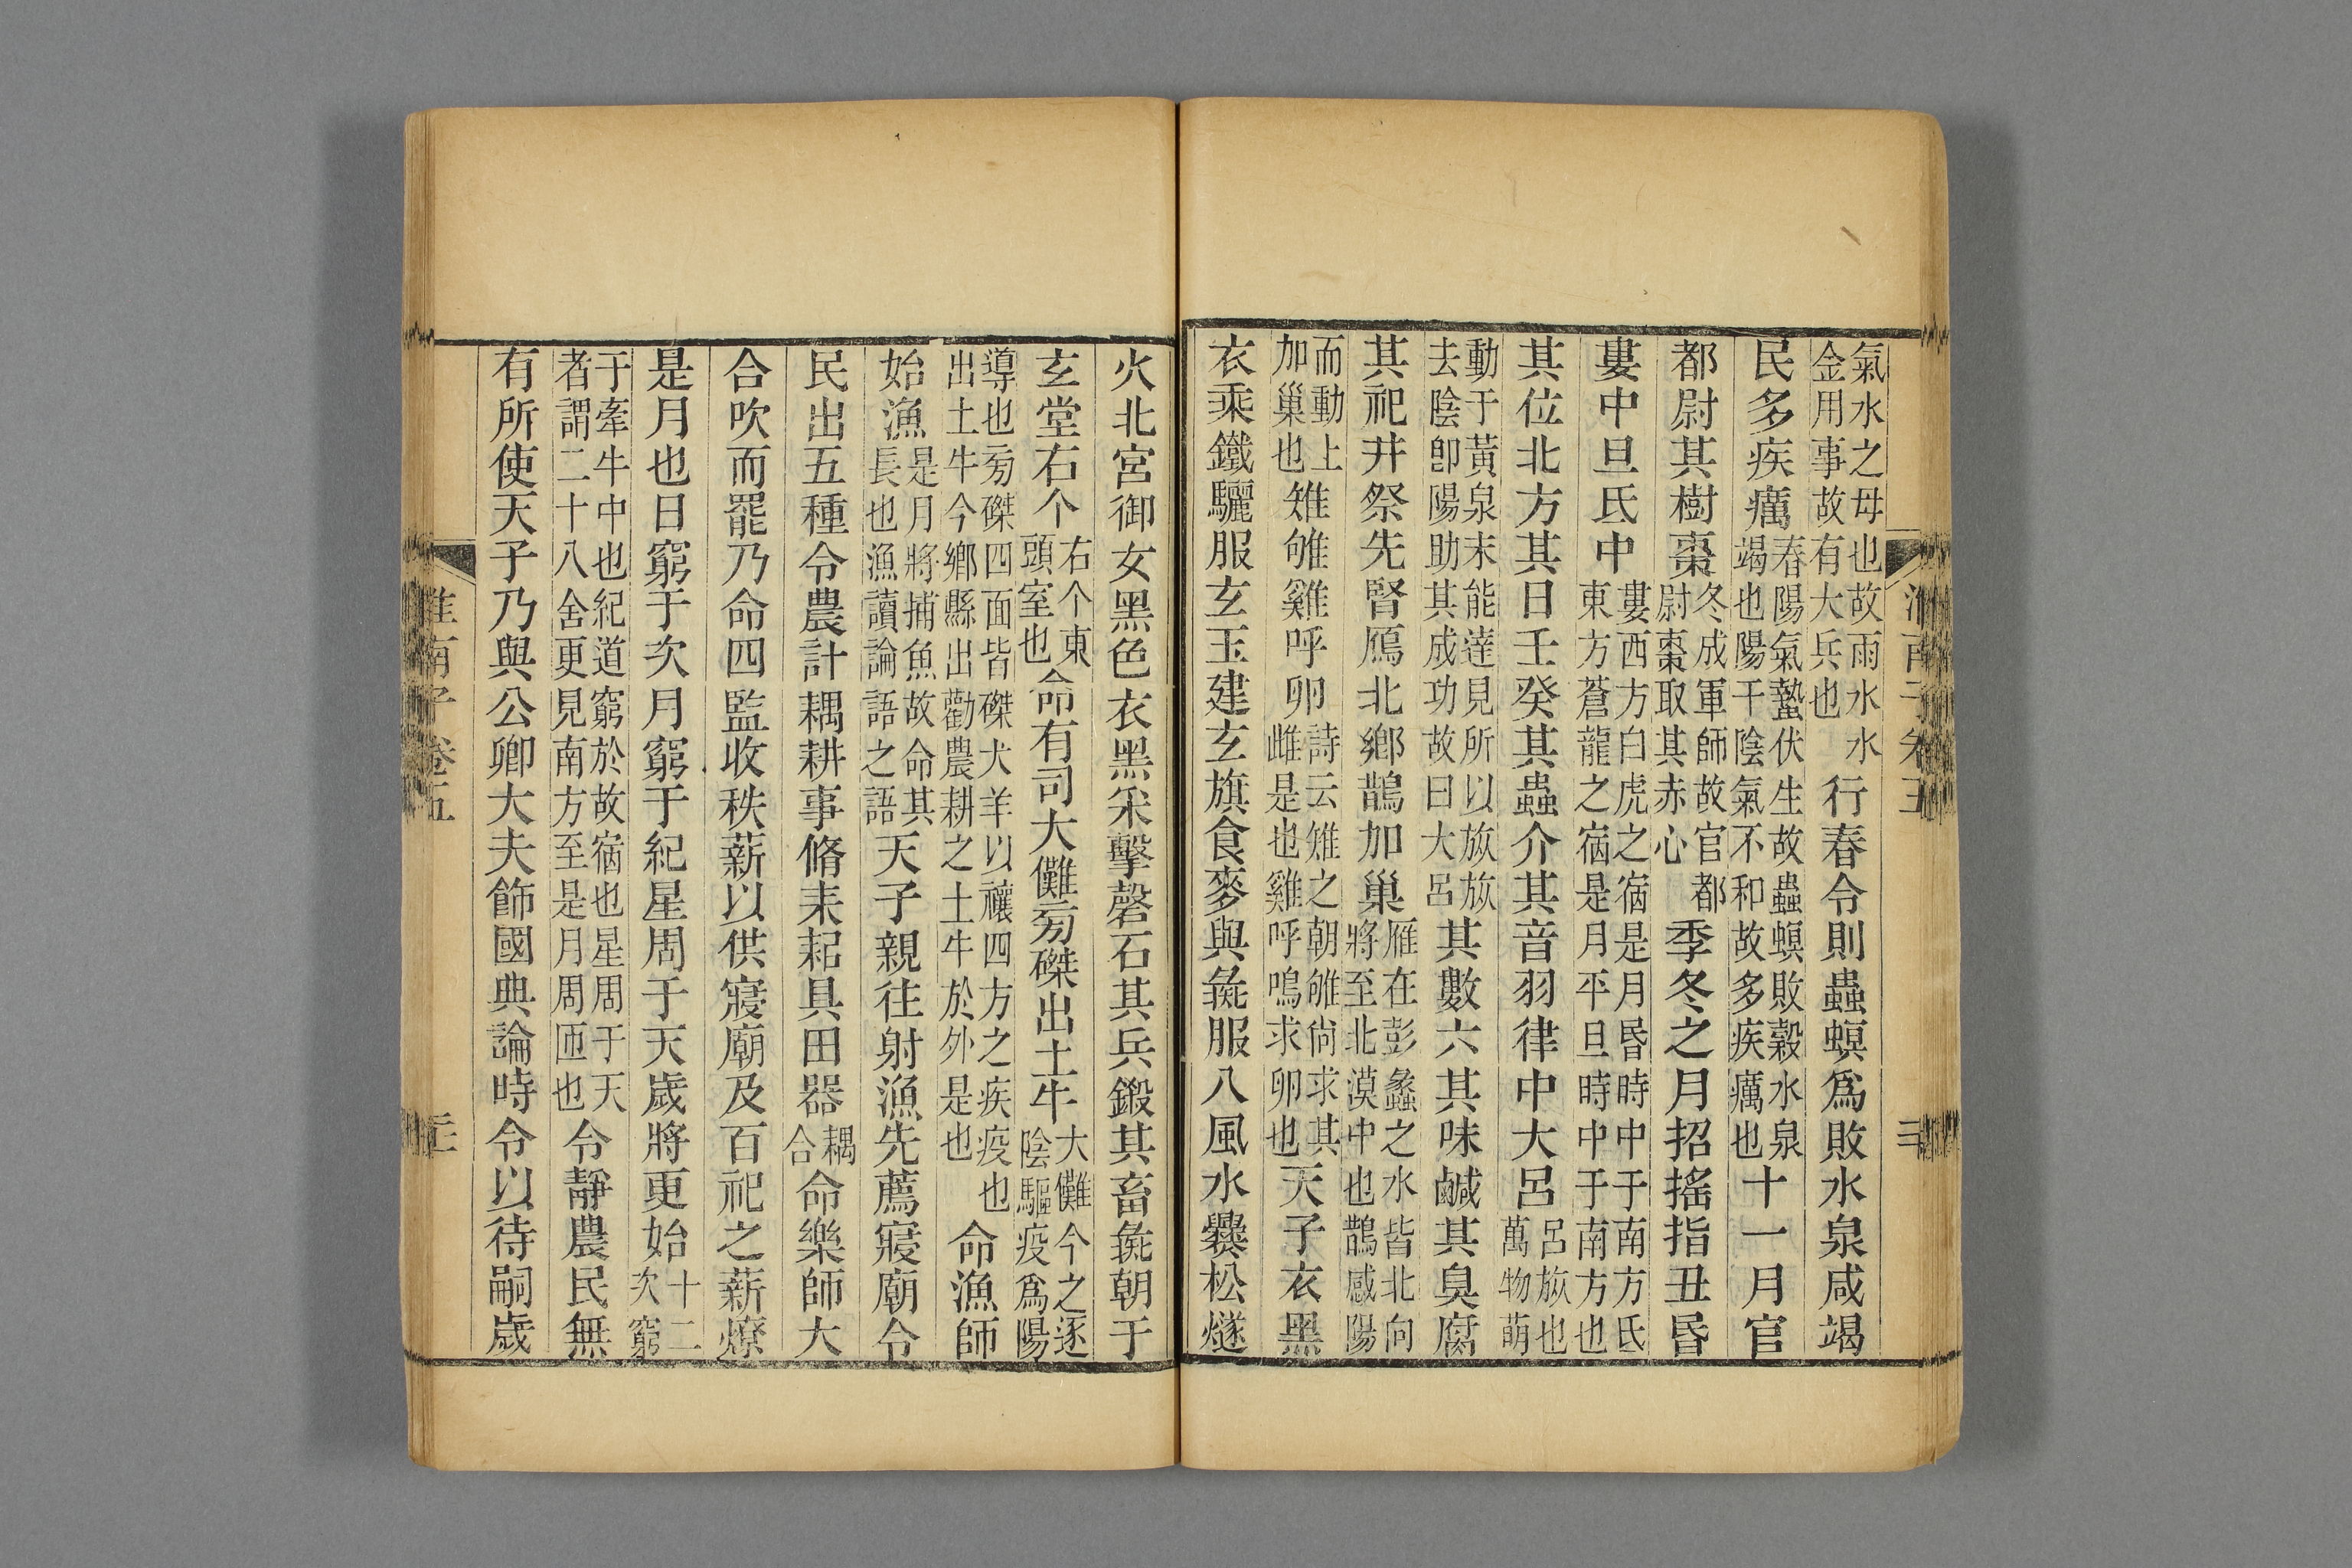 氣水之母也故雨水水金用事故有大兵也行春令則蟲螟爲敗水泉咸竭
民多疾癘春陽氣蟄伏生故蟲螟敗穀水泉竭也陽干陰氣不和故多疾癘也十一月官
都尉其樹棗冬成軍師故官都尉棗取其赤心季冬之月招搖指丑昏
婁中旦氐中婁西方白虎之宿是月昏時中于南方氐東方蒼龍之宿是月平旦時中于南方也
其位北方其日壬癸其蟲介其音羽律中大呂呂旅也萬物萌
動于黃泉未能達見所以旅旅去陰卽陽助其成功故曰大呂其數六其味鹹其臭腐
其祀井祭先腎鴈北鄉鵲加巢雁在彭蠡之水皆北向將至北漠中也鵲感陽
而動上加巢也雉雊雞呼卵詩云雉之朝雊尙求其雌是也雞呼鳴求卵也天子衣黑
衣乘鐵驪服玄玉建玄旗食麥與彘服八風水爨松燧
火北宮御女黑色衣黑采擊磬石其兵鍛其畜彘朝于
玄堂右个右个東頭室也命有司大儺旁磔出土牛大儺今之逐陰驅疫爲陽
導也旁磔四面皆磔犬羊以禳四方之疾疫也出土牛今鄉縣出勸農耕之土牛於外是也命漁師
始漁是月將捕魚故命其長也漁讀論語之語天子親往射漁先薦寢廟令
民出五種令農計耦耕事脩耒耜具田器耦合命樂師大
合吹而罷乃命四監收秩薪以供寢廟及百祀之薪燎
是月也日窮于次月窮于紀星周于天歲將更始十二次窮
于牽牛中也紀道窮於故宿也星周于天者謂二十八舍更見南方至是月周匝也令靜農民無
有所使天子乃與公卿大夫飾國典論時令以待嗣歲
淮南子 卷五